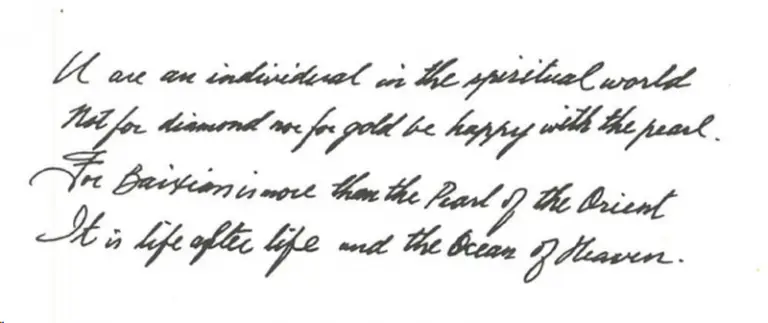 U are an individual in the spiritual world
Not for diamond nor for gold be happy with the pearl.
For Baixian is more than the Pearl of the Orient
It is life after life and the Ocean of Heaven.